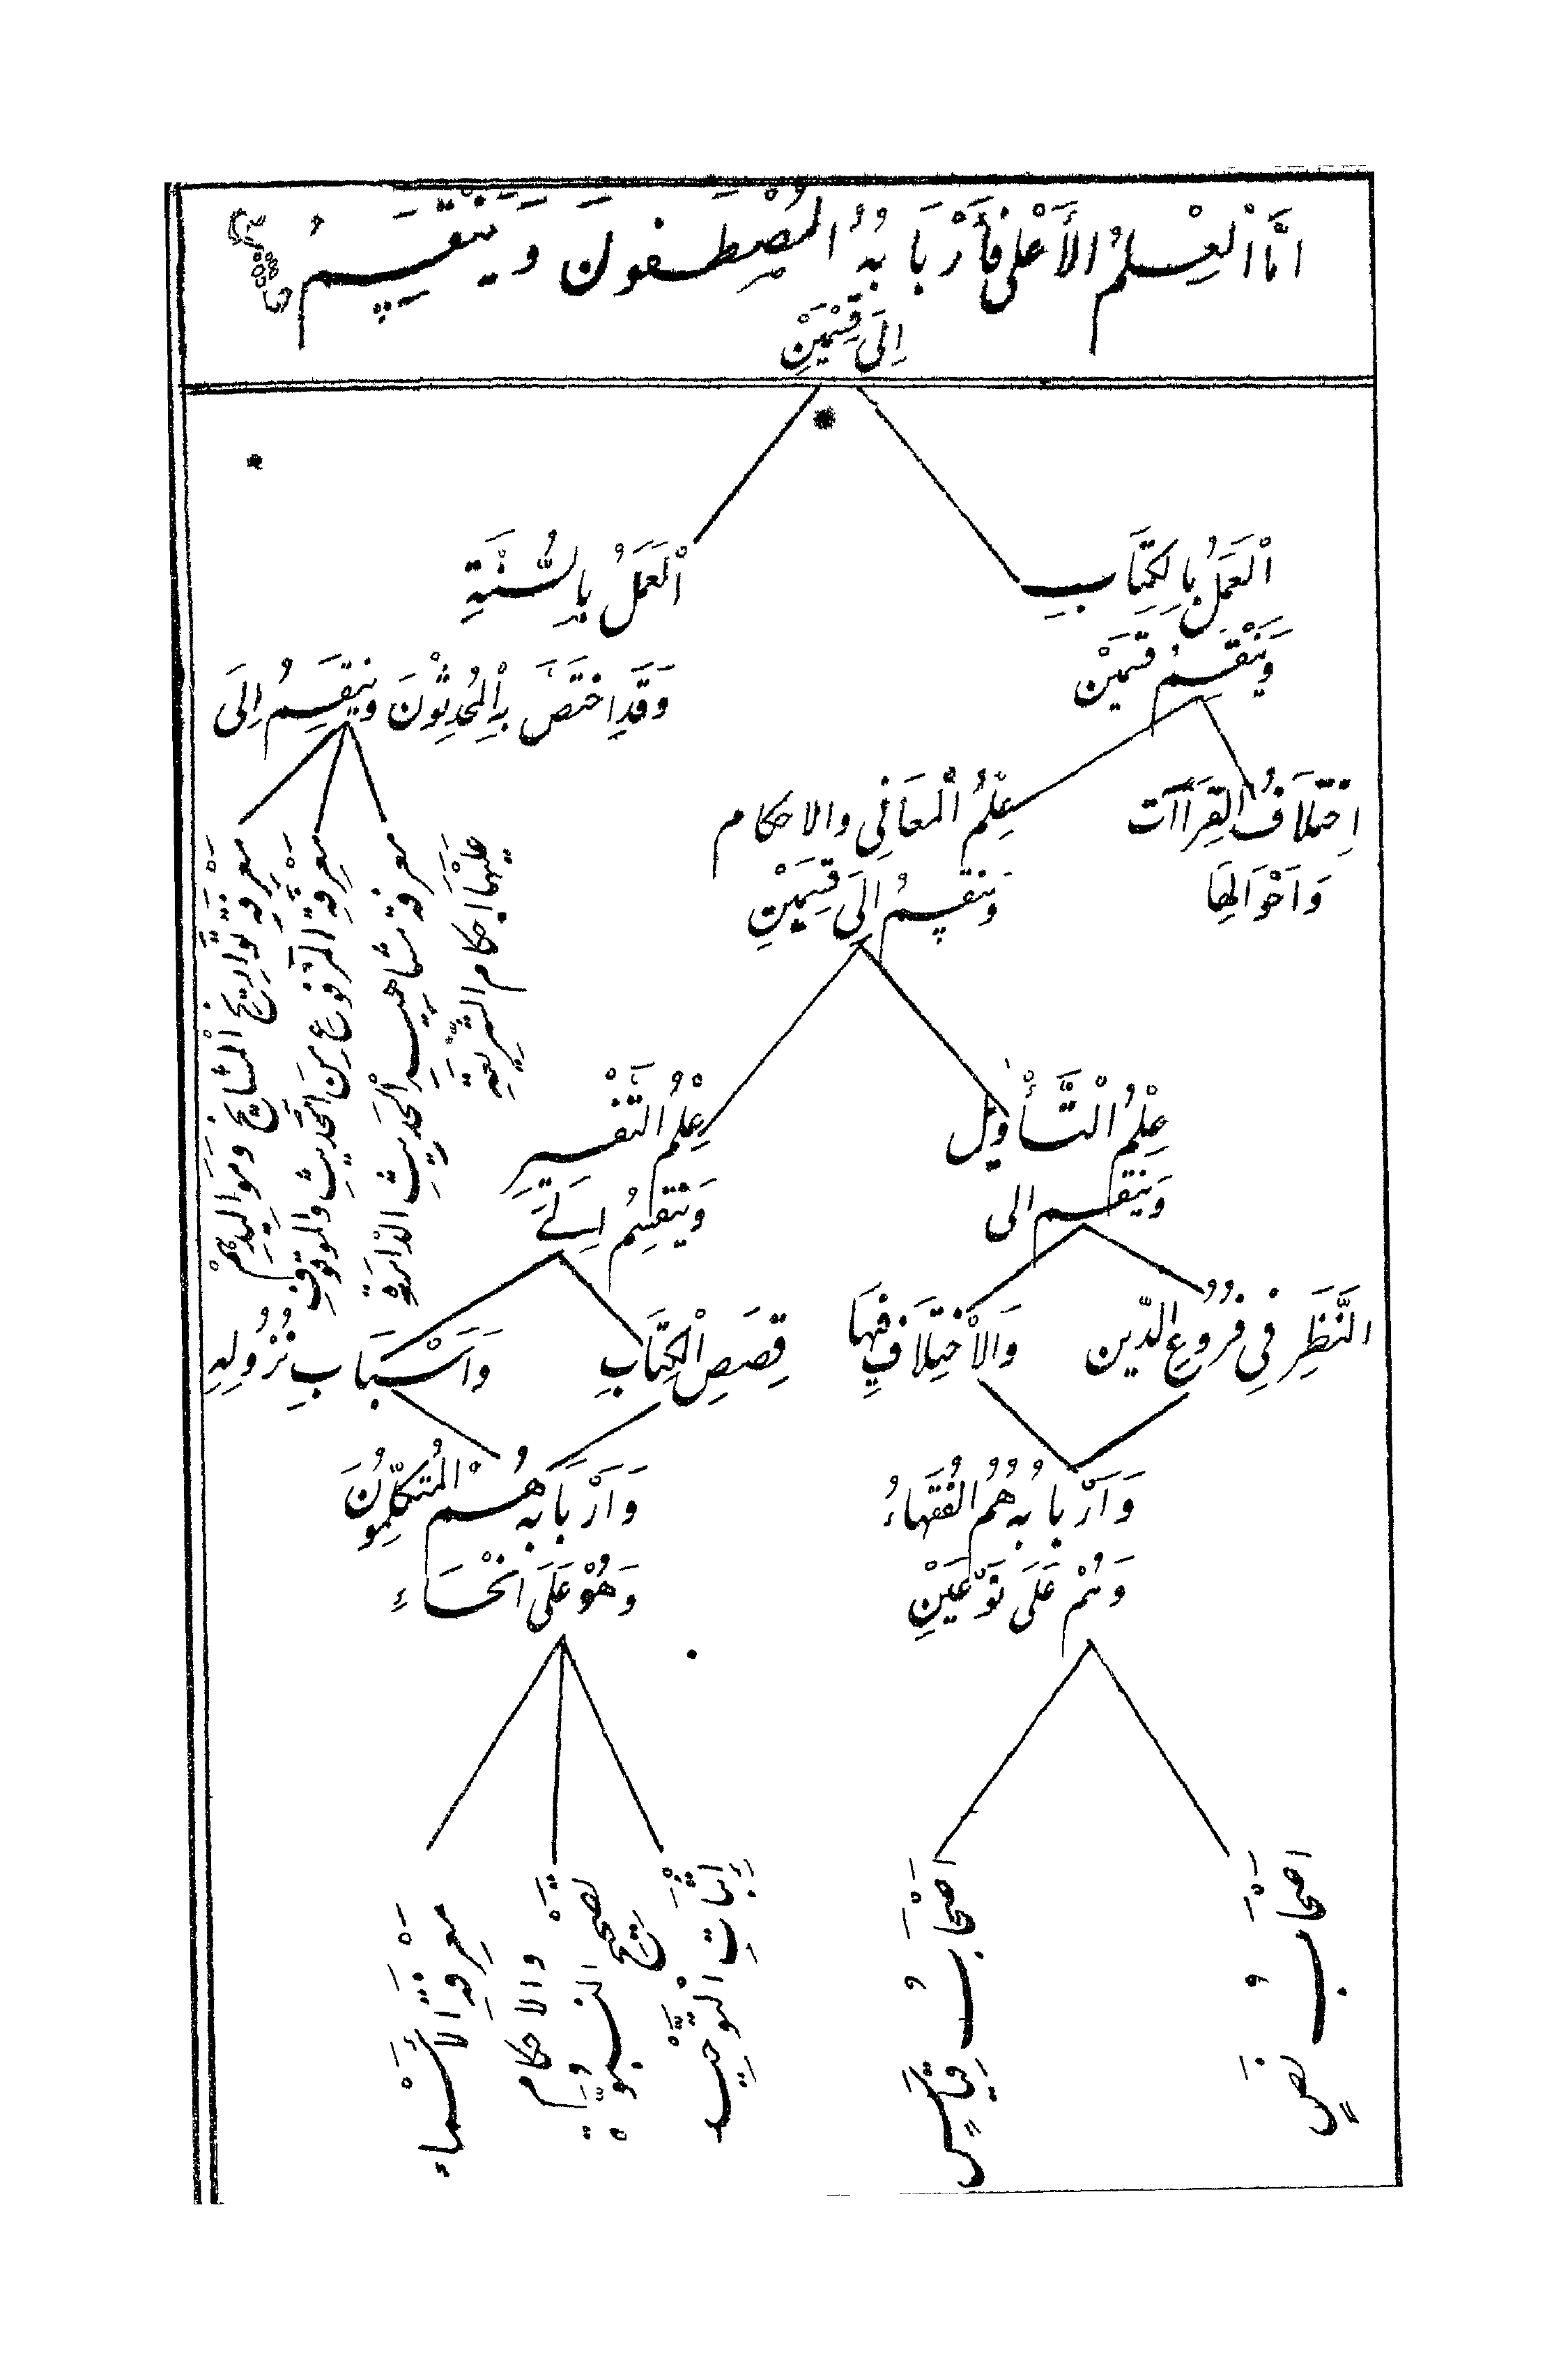 امَّا الْعِلْمُ الأَعْلى فَأَرْبَابُهُ الْمُصْطَفونَ وَيَنْقَسِمُ
اِلَى قِسْمَيْنِ
اَلْعَمَلُ بِالكِتَابِ
وَيَنْقَسِمُ قِسمَيْن
اِخْتِلَافُ القِرَاآت
وَاَحْوَالِهَا
عِلْمُ الْمَعَانِى والاحكام
وَينقسِمُ اِلَى قِسْمَيْنِ
عِلْمُ الْتَّأْويْل
وَيَنقسم الى
النَّظَرِ فِى فُرُوُعِ الدّين
وَالاْخْتِلَافِ فِيْهَا
وَاَرْبابُه هُمُ الفُقَهاءُ
وَهُمْ عَلَى نَوْعَيْنِ
اصْحَابُ نَصٍ
اصْحَابُ قِيَاسٍ
عِلْمُ التَّفْسيرِ
وَيَنْقسِمُ اِلے
قِصَصِ الْكِتَابِ
وَاَسْبَابِ نُزُولِهِ
وَاَرْبَابُه هُم الْمُتكَلِّمُونَ
وَهُوْ عَلَى انْحَاءِ
اِثْبَاتِ الْتَّوْحِيْد
تصحيح النبوّة
والاحكام
مَعْرِفَةِ الأَسْماءِ
اَلْعَمَلُ بِالسُّنَّةِ
وَقَدِ اخْتَصَّ بِالْمُحَدِثُوْنَ وَينقَسِمُ اِلَى
مَعرفة مشاهير الْحَدِيْثِ الدَّائرة
عَلَيْهَا اَحكام الشَّرِيْعَةِ
مَعْرِفَةِ الْمَرْفُوعِ مِنَ الحَدِيْثِ والموقوفِ
مَعْرِفَةِ تَوَّارِيْخ الْمَشايخ وَمَوَالِيْدِهِمْ